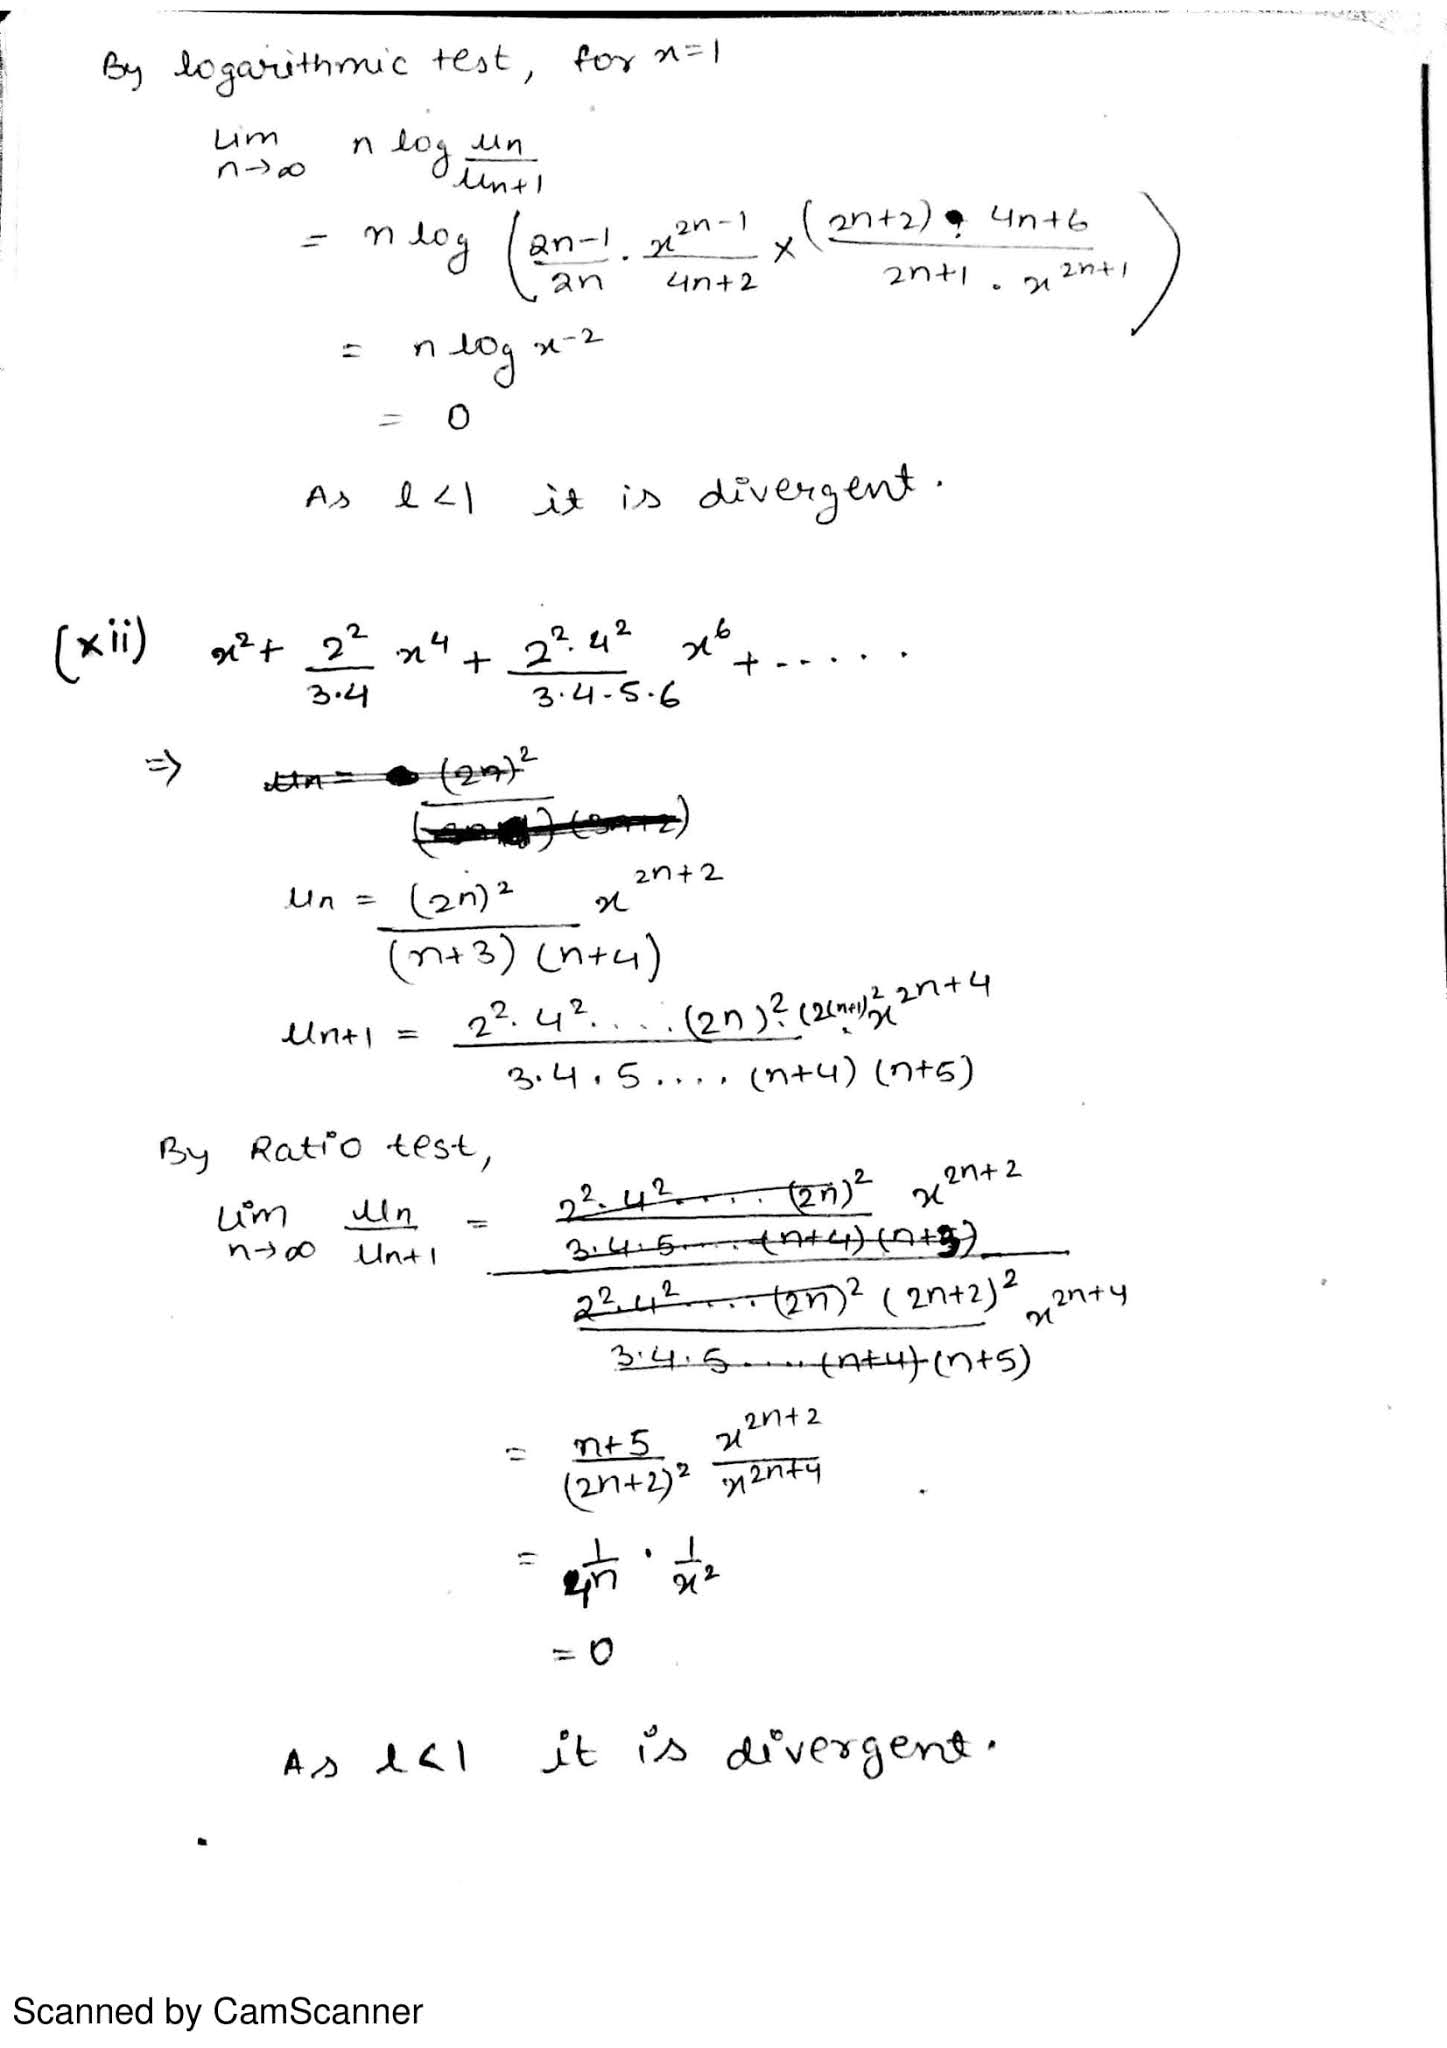 By logarithmic test, for x=1
Lim n→∞ n log un/un+1
= n log ( 2n-1/2n . x^2n-1/4n+2 × (2n+2) . 4n+6/2n+1 . x^2n+1 )
= n log x^-2
= 0
As l<1 it is divergent.
(xii) x^2 + 2^2/3.4 x^4 + 2^2.4^2/3.4.5.6 x^6 + .....
⇒ un = (2n)^2
un = (2n)^2/(n+3)(n+4) x^2n+2
un+1 = 2^2.4^2.....(2n)^2.(2(n+1))^2 x^2n+4/3.4.5....(n+4)(n+5)
By Ratio test,
Lim n→∞ un/un+1 = 2^2.4^2.....(2n)^2 x^2n+2/3.4.5.....(n+4)(n+3)
2^2.4^2.....(2n)^2(2n+2)^2 x^2n+4/3.4.5.....(n+4)(n+5)
= n+5/(2n+2)^2 x^2n+2/x^2n+4
= 1/4n . 1/x^2
= 0
As l<1 it is divergent.
Scanned by CamScanner